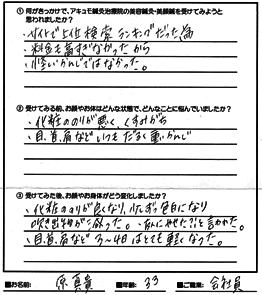 ①何がきっかけで、アキュモ鍼灸治療院の美容鍼灸・美顔鍼を受けてみようと
思われましたか?
・サイトで上位検索ランキングだった為
・料金も高すぎなかったから
・怪しいかんじではなかった。
②受けてみる前、お顔やお体はどんな状態で、どんなことに悩んでいましたか?
・化粧のりが悪く、くすみがち
・目、首、肩など いつも だるく重いかんじ
③受けてみた後、お顔やお身体がどう変化しましたか?
・化粧ののりが良くなり、 色白になり
吹き出物が減った。 やせた?!と言われた。
・目、首、肩など 3〜4日はとても軽くなった。
■お名前: 原 真貴 ■年齢: 33 ■ご職業: 会社員